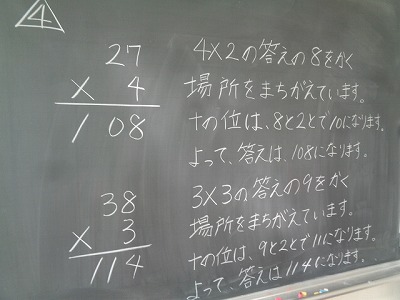 4
27
× 4
108
4×2の答えの8をかく
場所をまちがえています。
十の位は、8と2とで10になります。
よって、答えは、108になります。
38
× 3
114
3×3の答えの9をかく
場所をまちがえています。
十の位は、9と2とで11になります。
よって、答えは114になります。